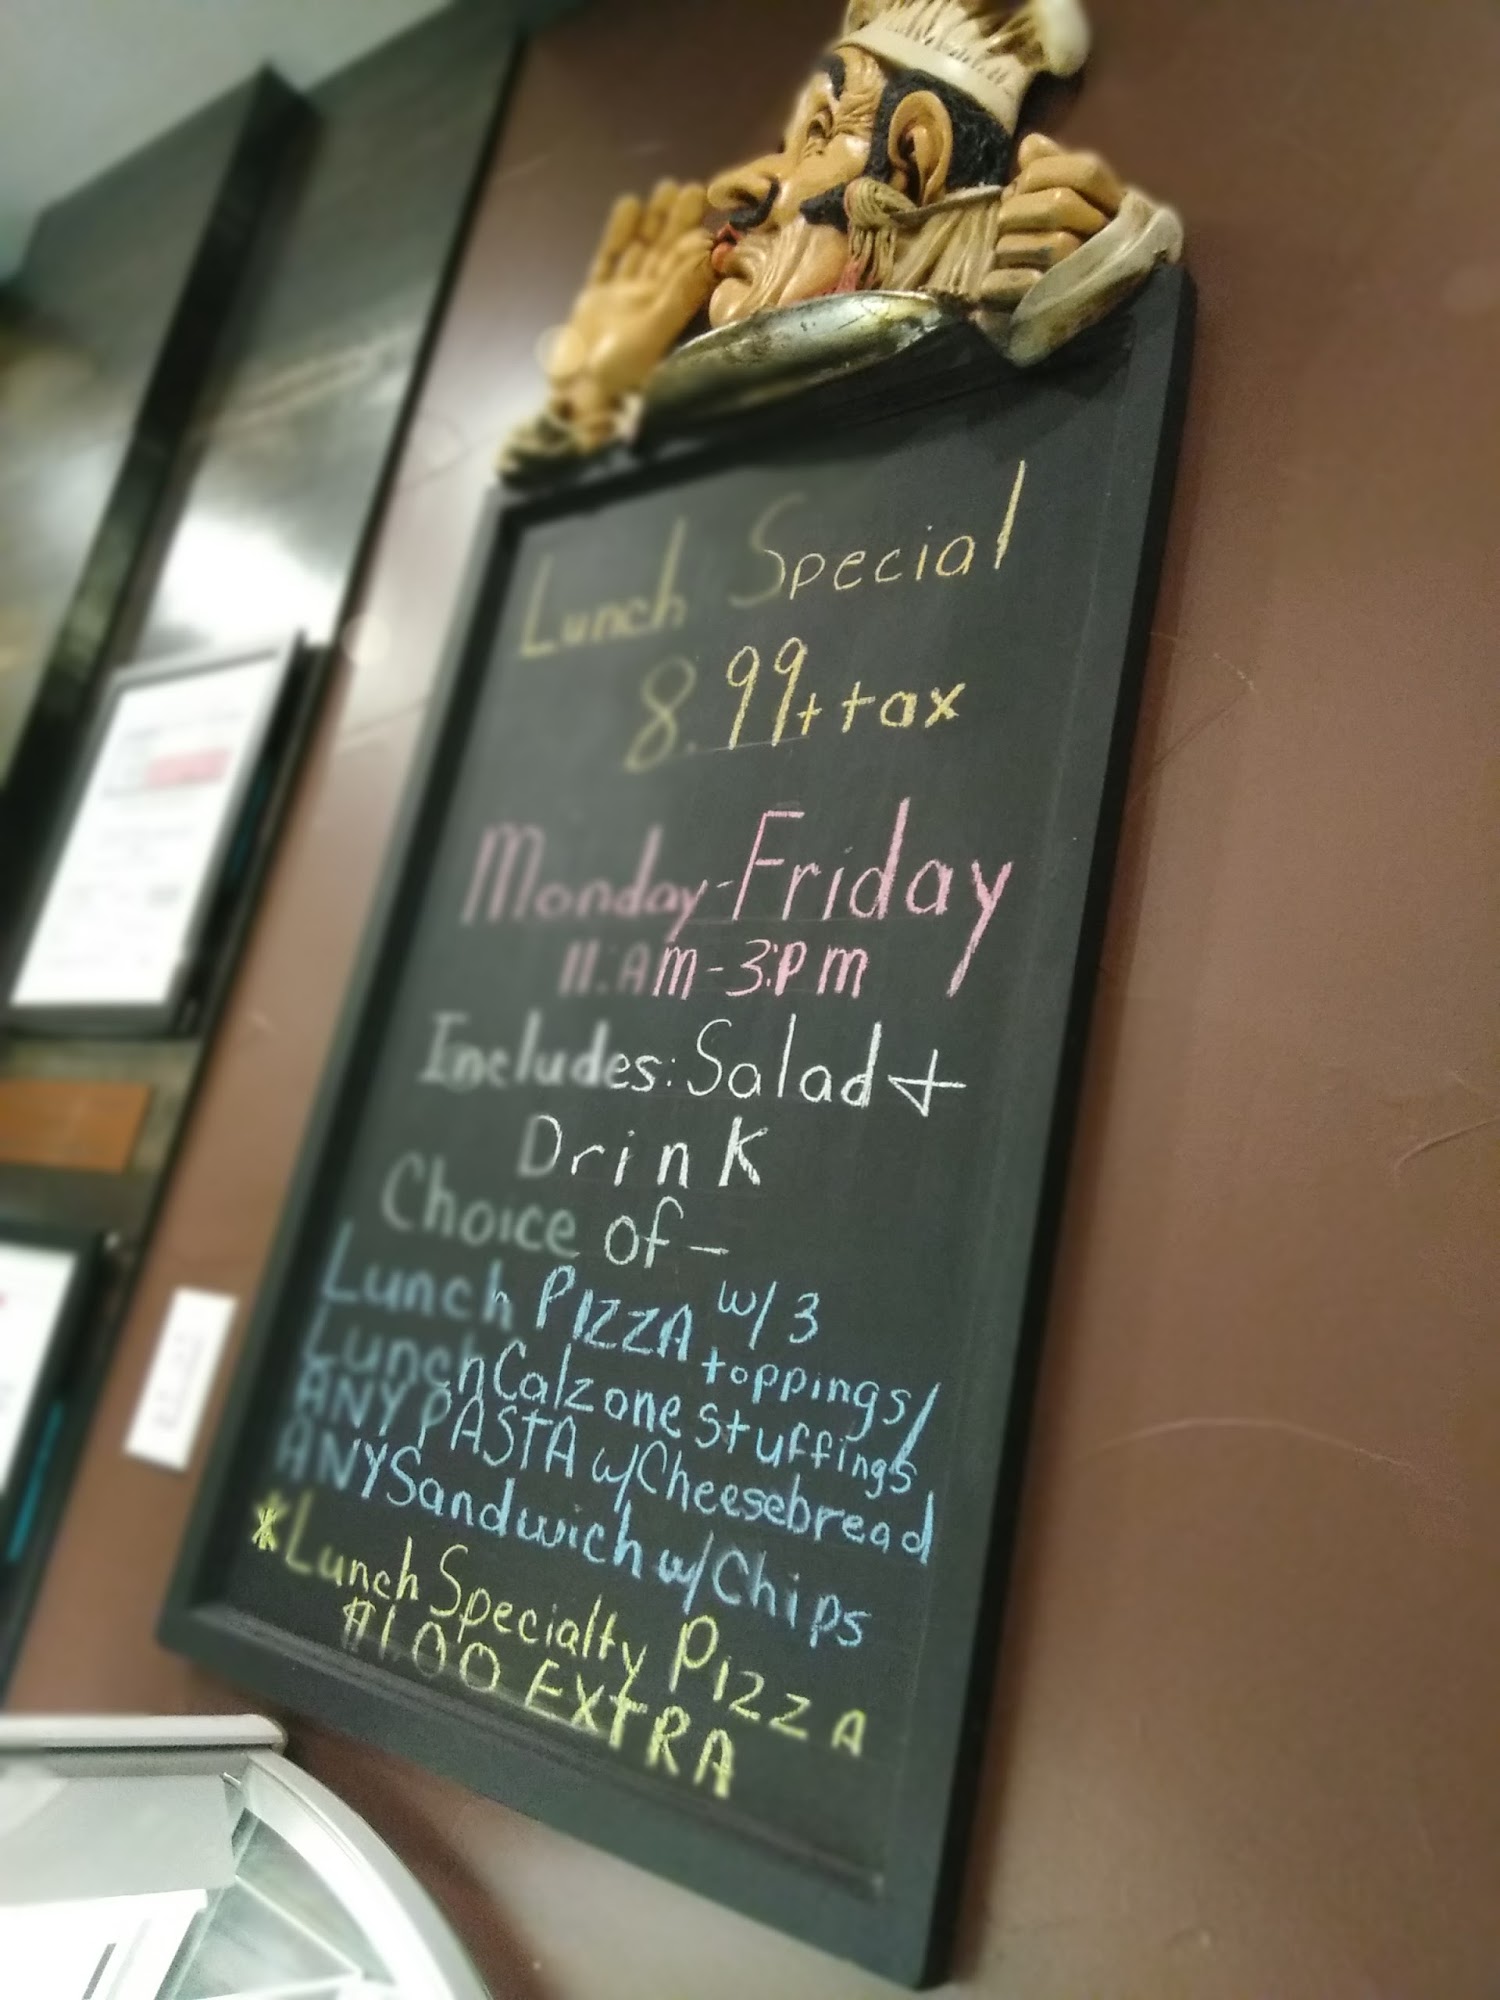 Lunch Special
8.99 + tax
Monday-Friday
11:AM-3:PM
Includes: Salad +
Drink
Choice of -
Lunch PIZZA w/3
toppings/
Lunch Calzone stuffings
ANY PASTA w/Cheesebread
ANY Sandwich w/Chips
*Lunch Specialty Pizza
$1.00 EXTRA